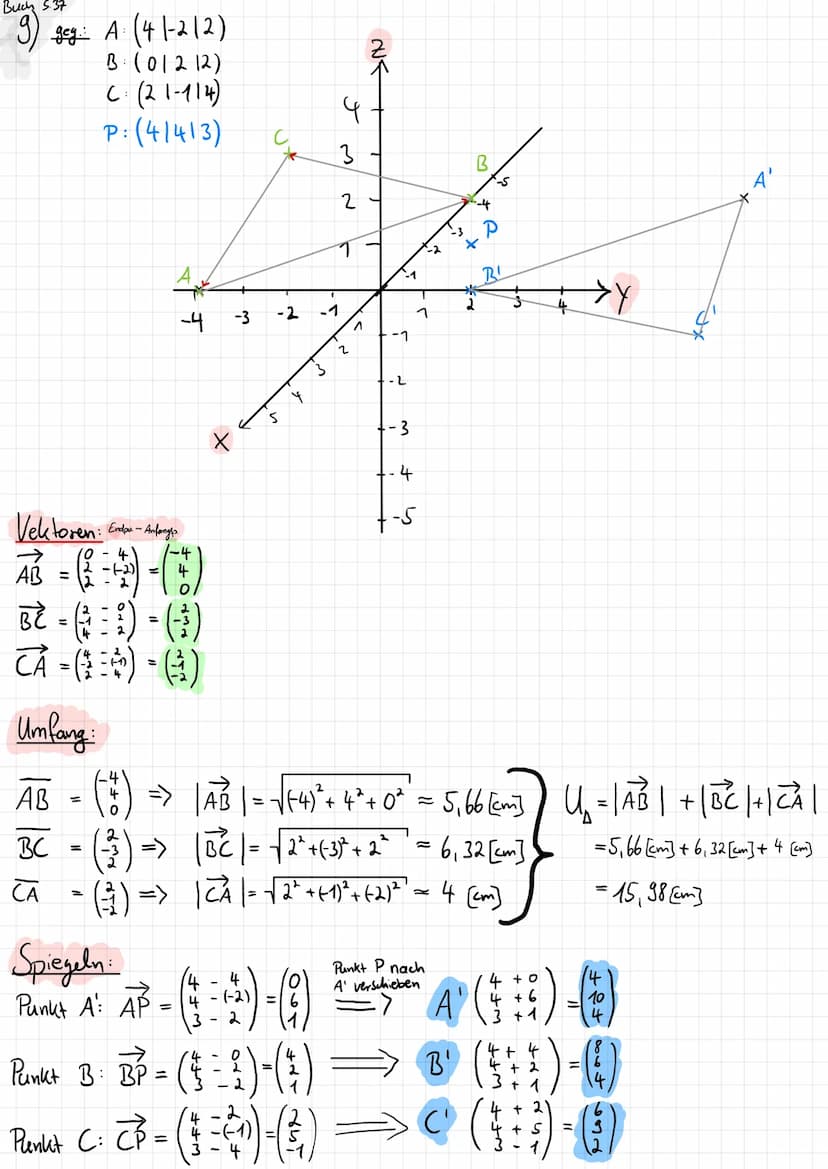 Buch S.37
g) geg.: A: (4|-2|2)
B: (0|2|2)
C: (2|-1|4)
P: (4|4|3)
Z
4
3
2
1
C
B
-5
-4
-3
-2
-1
P
A'
A
B'
Y
-4 -3 -2 -1
1 2 3 4
C'
1
2
3
4
5
X
-1
-2
-3
-4
-5
Vektoren: Endpu - Anfangsp
AB = (0 - 4 / 2 - (-2) / 2 - 2) = (-4 / 4 / 0)
BC = (2 - 0 / -1 - 2 / 4 - 2) = (2 / -3 / 2)
CA = (4 - 2 / -2 - (-1) / 2 - 4) = (2 / -1 / -2)
Umfang:
AB = (-4 / 4 / 0) => |AB| = √(-4)² + 4² + 0² ≈ 5,66 [cm]
BC = (2 / -3 / 2) => |BC| = √2² + (-3)² + 2² ≈ 6,32 [cm]
CA = (2 / -1 / -2) => |CA| = √2² + (-1)² + (-2)² ≈ 4 [cm]
U△ = |AB| + |BC| + |CA|
= 5,66 [cm] + 6,32 [cm] + 4 [cm]
= 15,98 [cm]
Spiegeln:
Punkt A': AP = (4 - 4 / 4 - (-2) / 3 - 2) = (0 / 6 / 1) Punkt P nach A' verschieben => A' (4 + 0 / 4 + 6 / 3 + 1) = (4 / 10 / 4)
Punkt B: BP = (4 - 0 / 4 - 2 / 3 - 2) = (4 / 2 / 1) => B' (4 + 4 / 4 + 2 / 3 + 1) = (8 / 6 / 4)
Punkt C: CP = (4 - 2 / 4 - (-1) / 3 - 4) = (2 / 5 / -1) => C' (4 + 2 / 4 + 5 / 3 - 1) = (6 / 9 / 2)